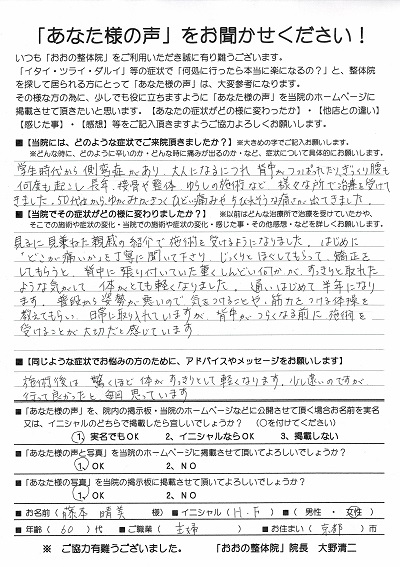 「あなた様の声」をお聞かせください！
いつも「おおの整体院」をご利用いただき誠に有り難うございます。
「イタイ・ツライ・ダルイ」等の症状で「何処に行ったら本当に楽になるの？」と、整体院
を探して居られる方にとって「あなた様の声」は、大変参考になります。
その様な方の為に、少しでも役に立ちますように「あなた様の声」を当院のホームページに
掲載させて頂きたいと思います。【あなたの症状がどの様に変わったか】・【他店との違い】
【感じた事】・【感想】等をご記入頂きますようご協力よろしくお願いします。
■【当院には、どのような症状でご来院頂きましたか？】※大きめの字でご記入お願いします。
※どんな時に、どのように辛いのか・どんな時に痛みが出るのか・など、症状について具体的にお願いします。
学生時代から側弯症があり、大人になるにつれ背中がつっぱれたりぎっくり腰も
何度も起こし長年、接骨や整体、ゆらしの施術など様々な所で治療を受けて
きました。50代からゆがみがきつくひどい痛みや
痛さが出てきました。
■【当院でその症状がどの様に変わりましたか？】※以前はどんな治療所で治療を受けていたか、
そこでの施術や症状の変化・当院での施術や症状の変化・感じた事・その他感想・などを詳しくお願いします。
見るに見兼ねた親戚の紹介で施術を受けるようになりました。はじめに
"どこが痛いか"を丁寧に聞いて下さり、じっくりとほぐしてもらって、矯正を
してもらうと、背中に張り付いていた重くしんどい何かが、すっきりと取れた
ような気がして体がとても軽くなりました。通いはじめて半年になり
ます。普段から姿勢が悪いので気をつけることや、筋力をつける体操を
教えてもらい日常に取り入れていますが、背中がつらくなる前に施術を
受けることが大切だと感じています
■【同じような症状でお悩みの方のために、アドバイスやメッセージをお願いします】
施術後は驚くほど体がすっきりとして軽くなります。少し遠いのですが
行って良かったと毎回思っています
■「あなた様の声」を、院内の掲示板・当院のホームページなどに公開させて頂く場合お名前を実名
又は、イニシャルのどちらで掲載したら宜しいでしょうか？ （○を付けてください）
1、実名でもOK 2、イニシャルならOK 3、掲載しない
■「あなた様の声と写真」を当院のホームページに掲載させて頂いてよろしいでしょうか？
1、OK 2、NO
■「あなた様の写真」を当院の掲示板に掲載させて頂いてよろしいでしょうか？
1、OK 2、NO
■ お名前（ 藤本 晴美 様） ■ イニシャル（ H.F ） ■（ 男性 ・ 女性 ）
■ 年齢（ 60 ）代 ■ ご職業（ 主婦 ） ■ お住まい（ 京都 ）市
※ ご協力有難うございました。 「おおの整体院」院長 大野清二